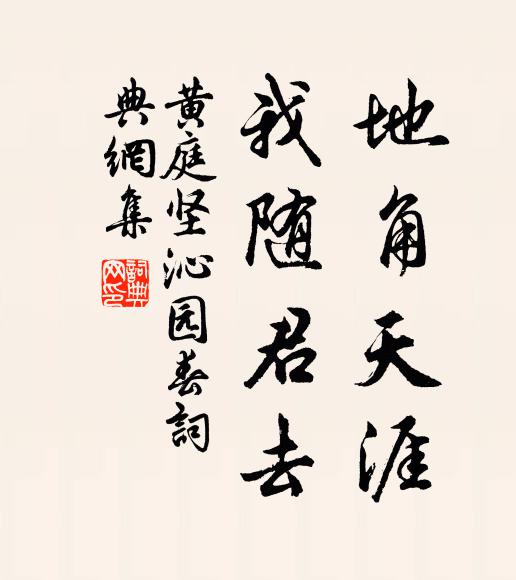 地角天涯
我随君去
黄庭坚沁园春詞
典網集
詞典
网印